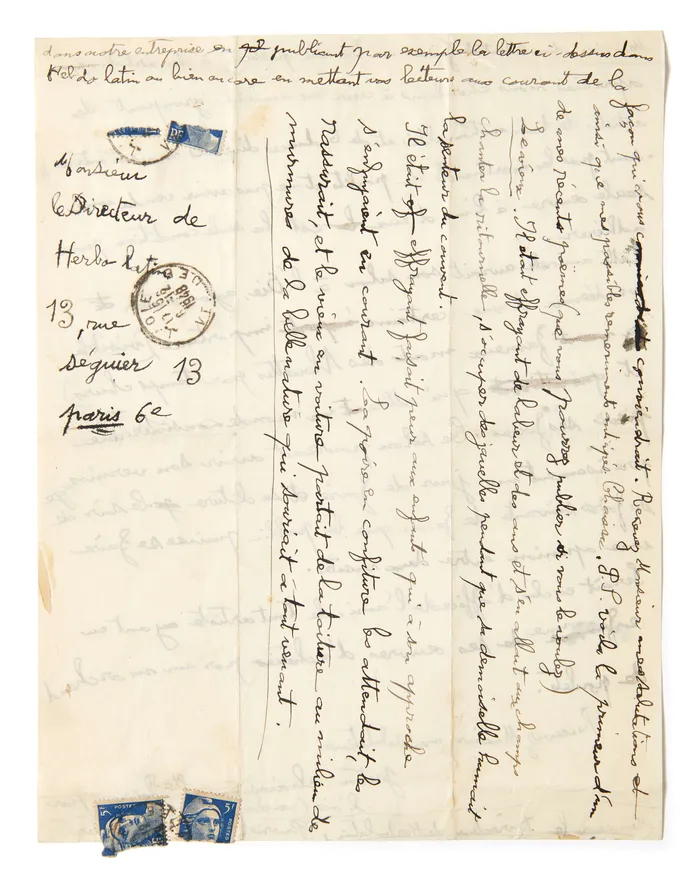 dans notre entreprise en publiant par exemple la lettre ci-dessus dans
Hebdo latin ou bien encore en mettant vos lecteurs aux courant de la
façon qui vous conviendrait. Recevez Monsieur mes salutations et
ainsi que mes possible remerciments anticipés Chaissac. P.S. voici la primeur d'un
de mes récents poèmes (que vous pourrez publier si vous le voulez
Le vieux. Il était effrayant de labeur et des ans et s'en allait aux champs
chanter la ritournelle, s'occuper des javelles pendant que sa demoiselle humait
la senteur du couvent.
Il était effrayant, faisait peur aux enfants qui à son approche
s'enfuyaient en courant. La poire en confiture les attendait, les
rassurait, et le vieux en voiture partait de la toiture au milieu de
murmures de la belle nature qui souriait à tout venant.
Monsieur
le Directeur de
Herbo latin
13, rue
séguier 13
paris 6e
RF
VIX
1948
5F
POSTES
5F
POSTES